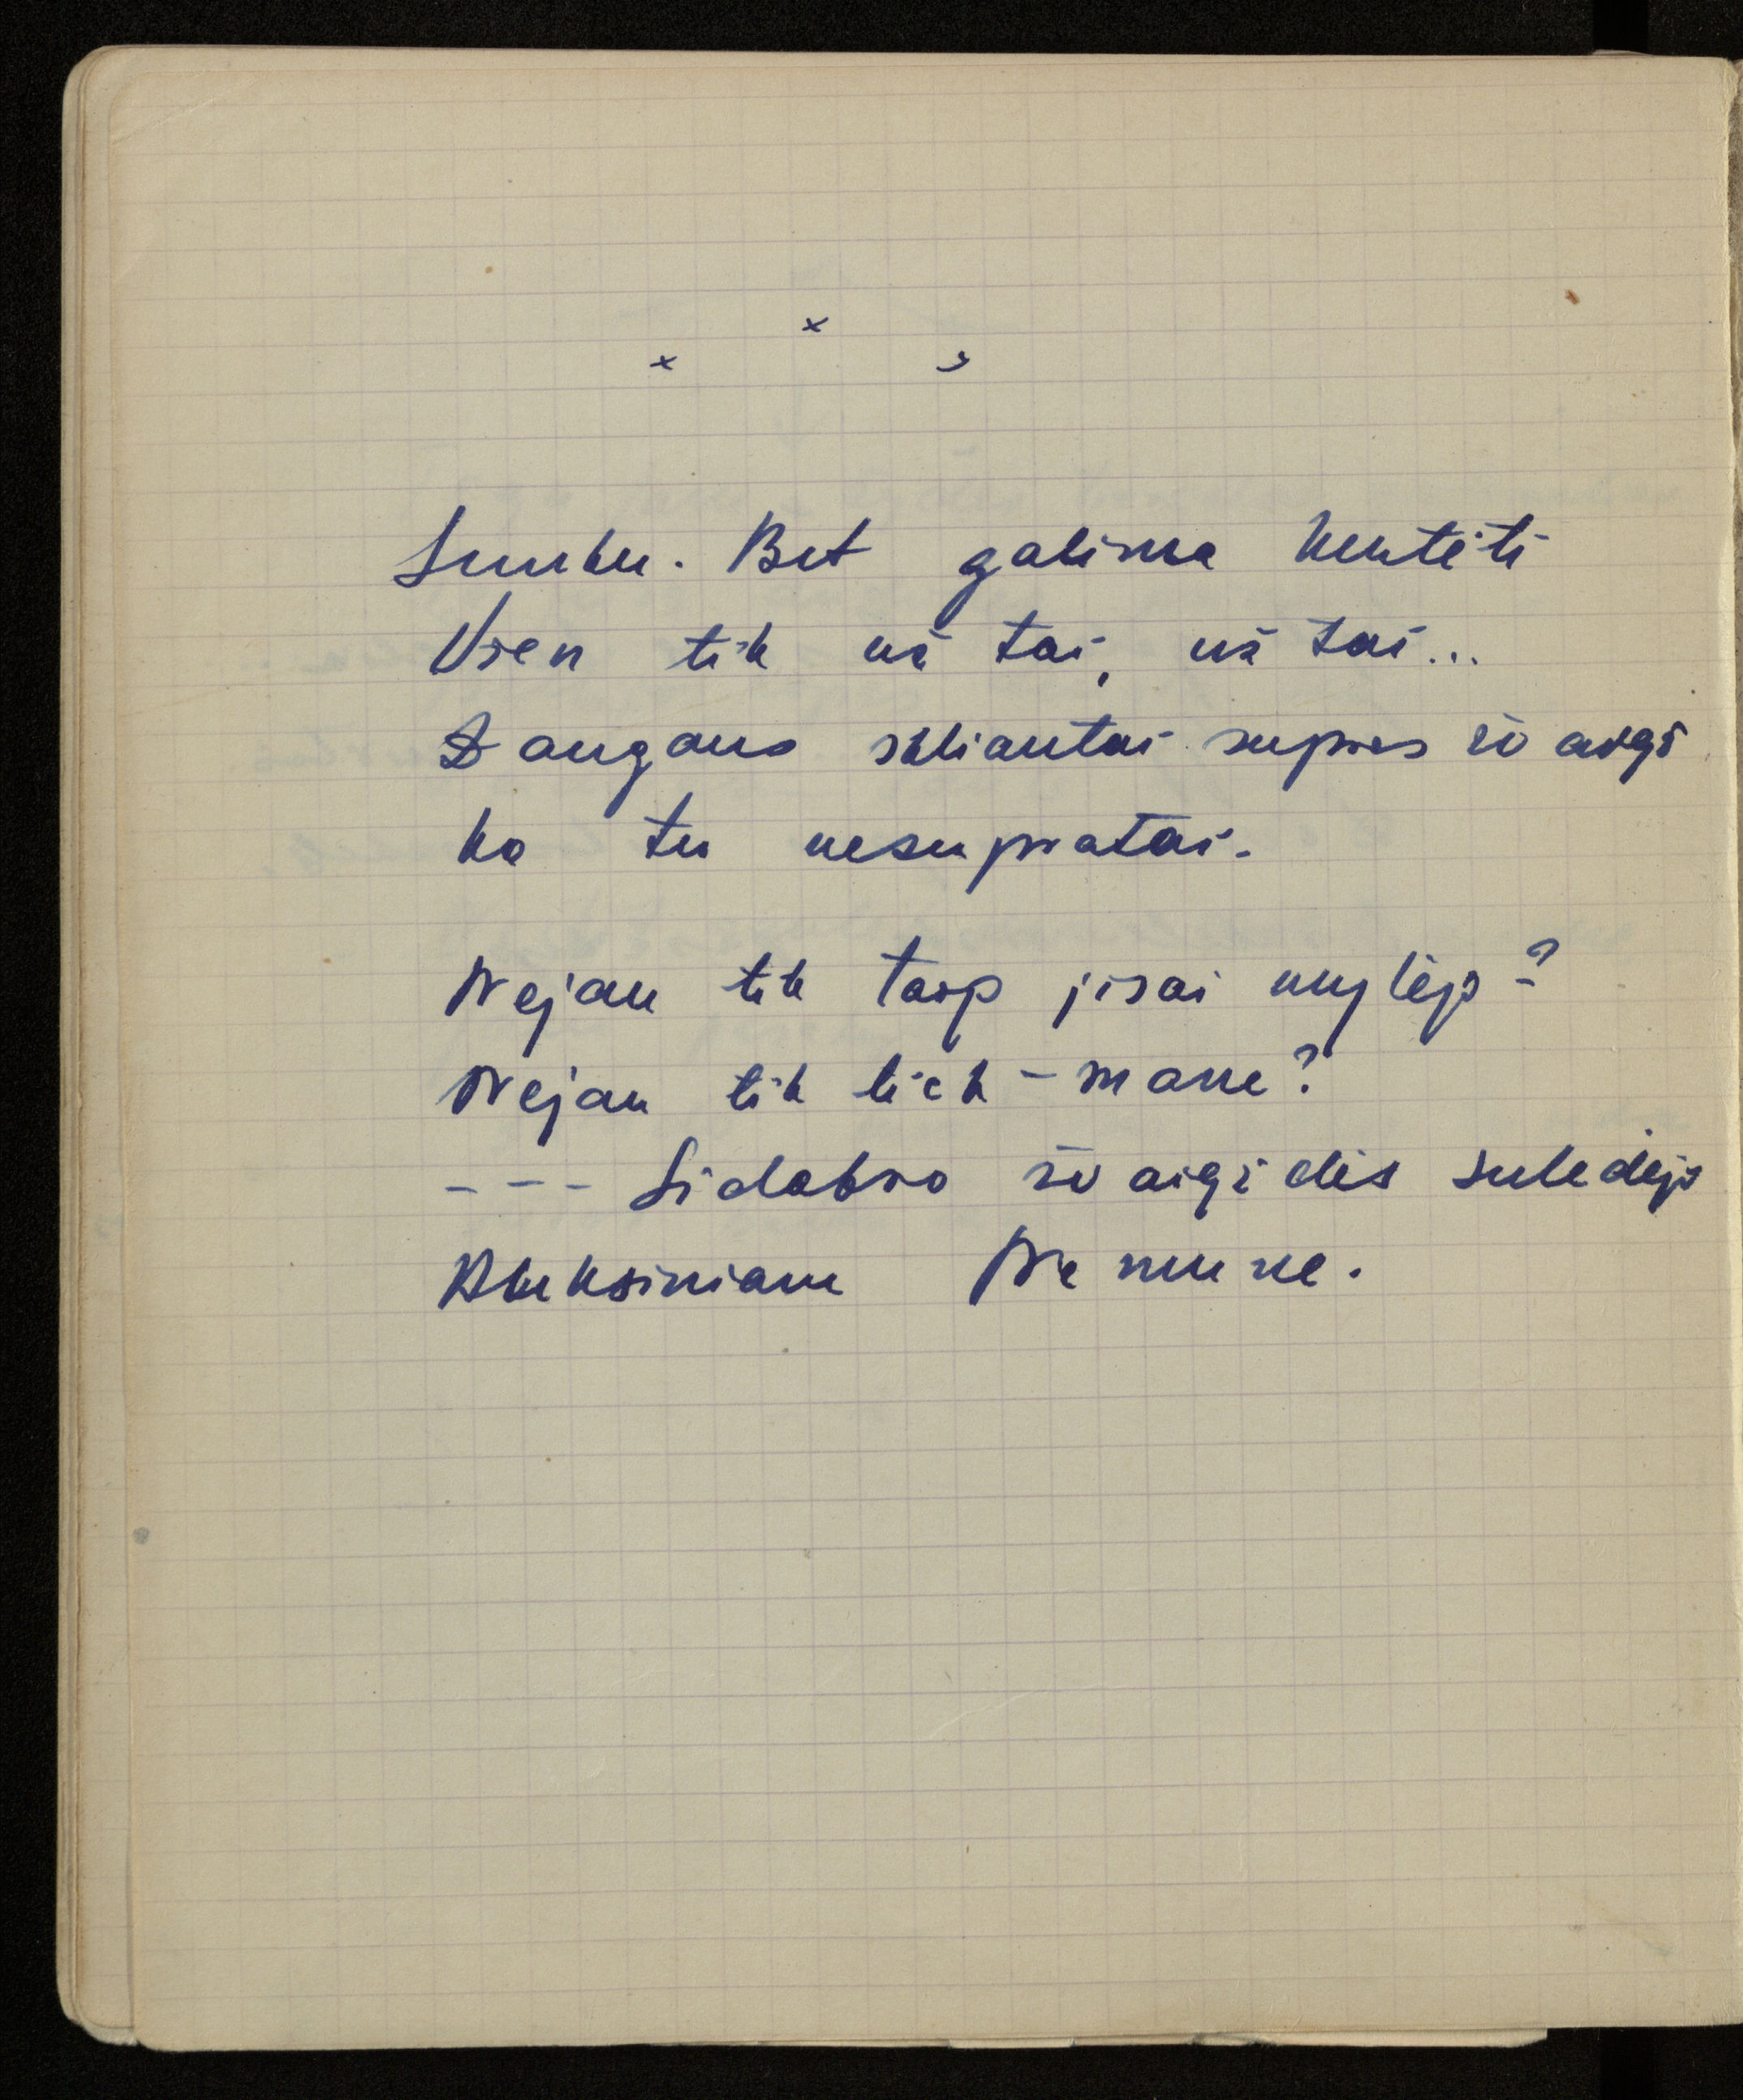 x
x x
Sunku. Bet galima kentėti
Vien tik už tai, už tai...
Dangaus skliautai supras žvaigž
ko tu nesupratai.
Nejau tik taip jisai mylėjo?
Nejau tik tiek – mane?
--- Sidabro žvaigždės suledėjo
Auksiniam Nemune.